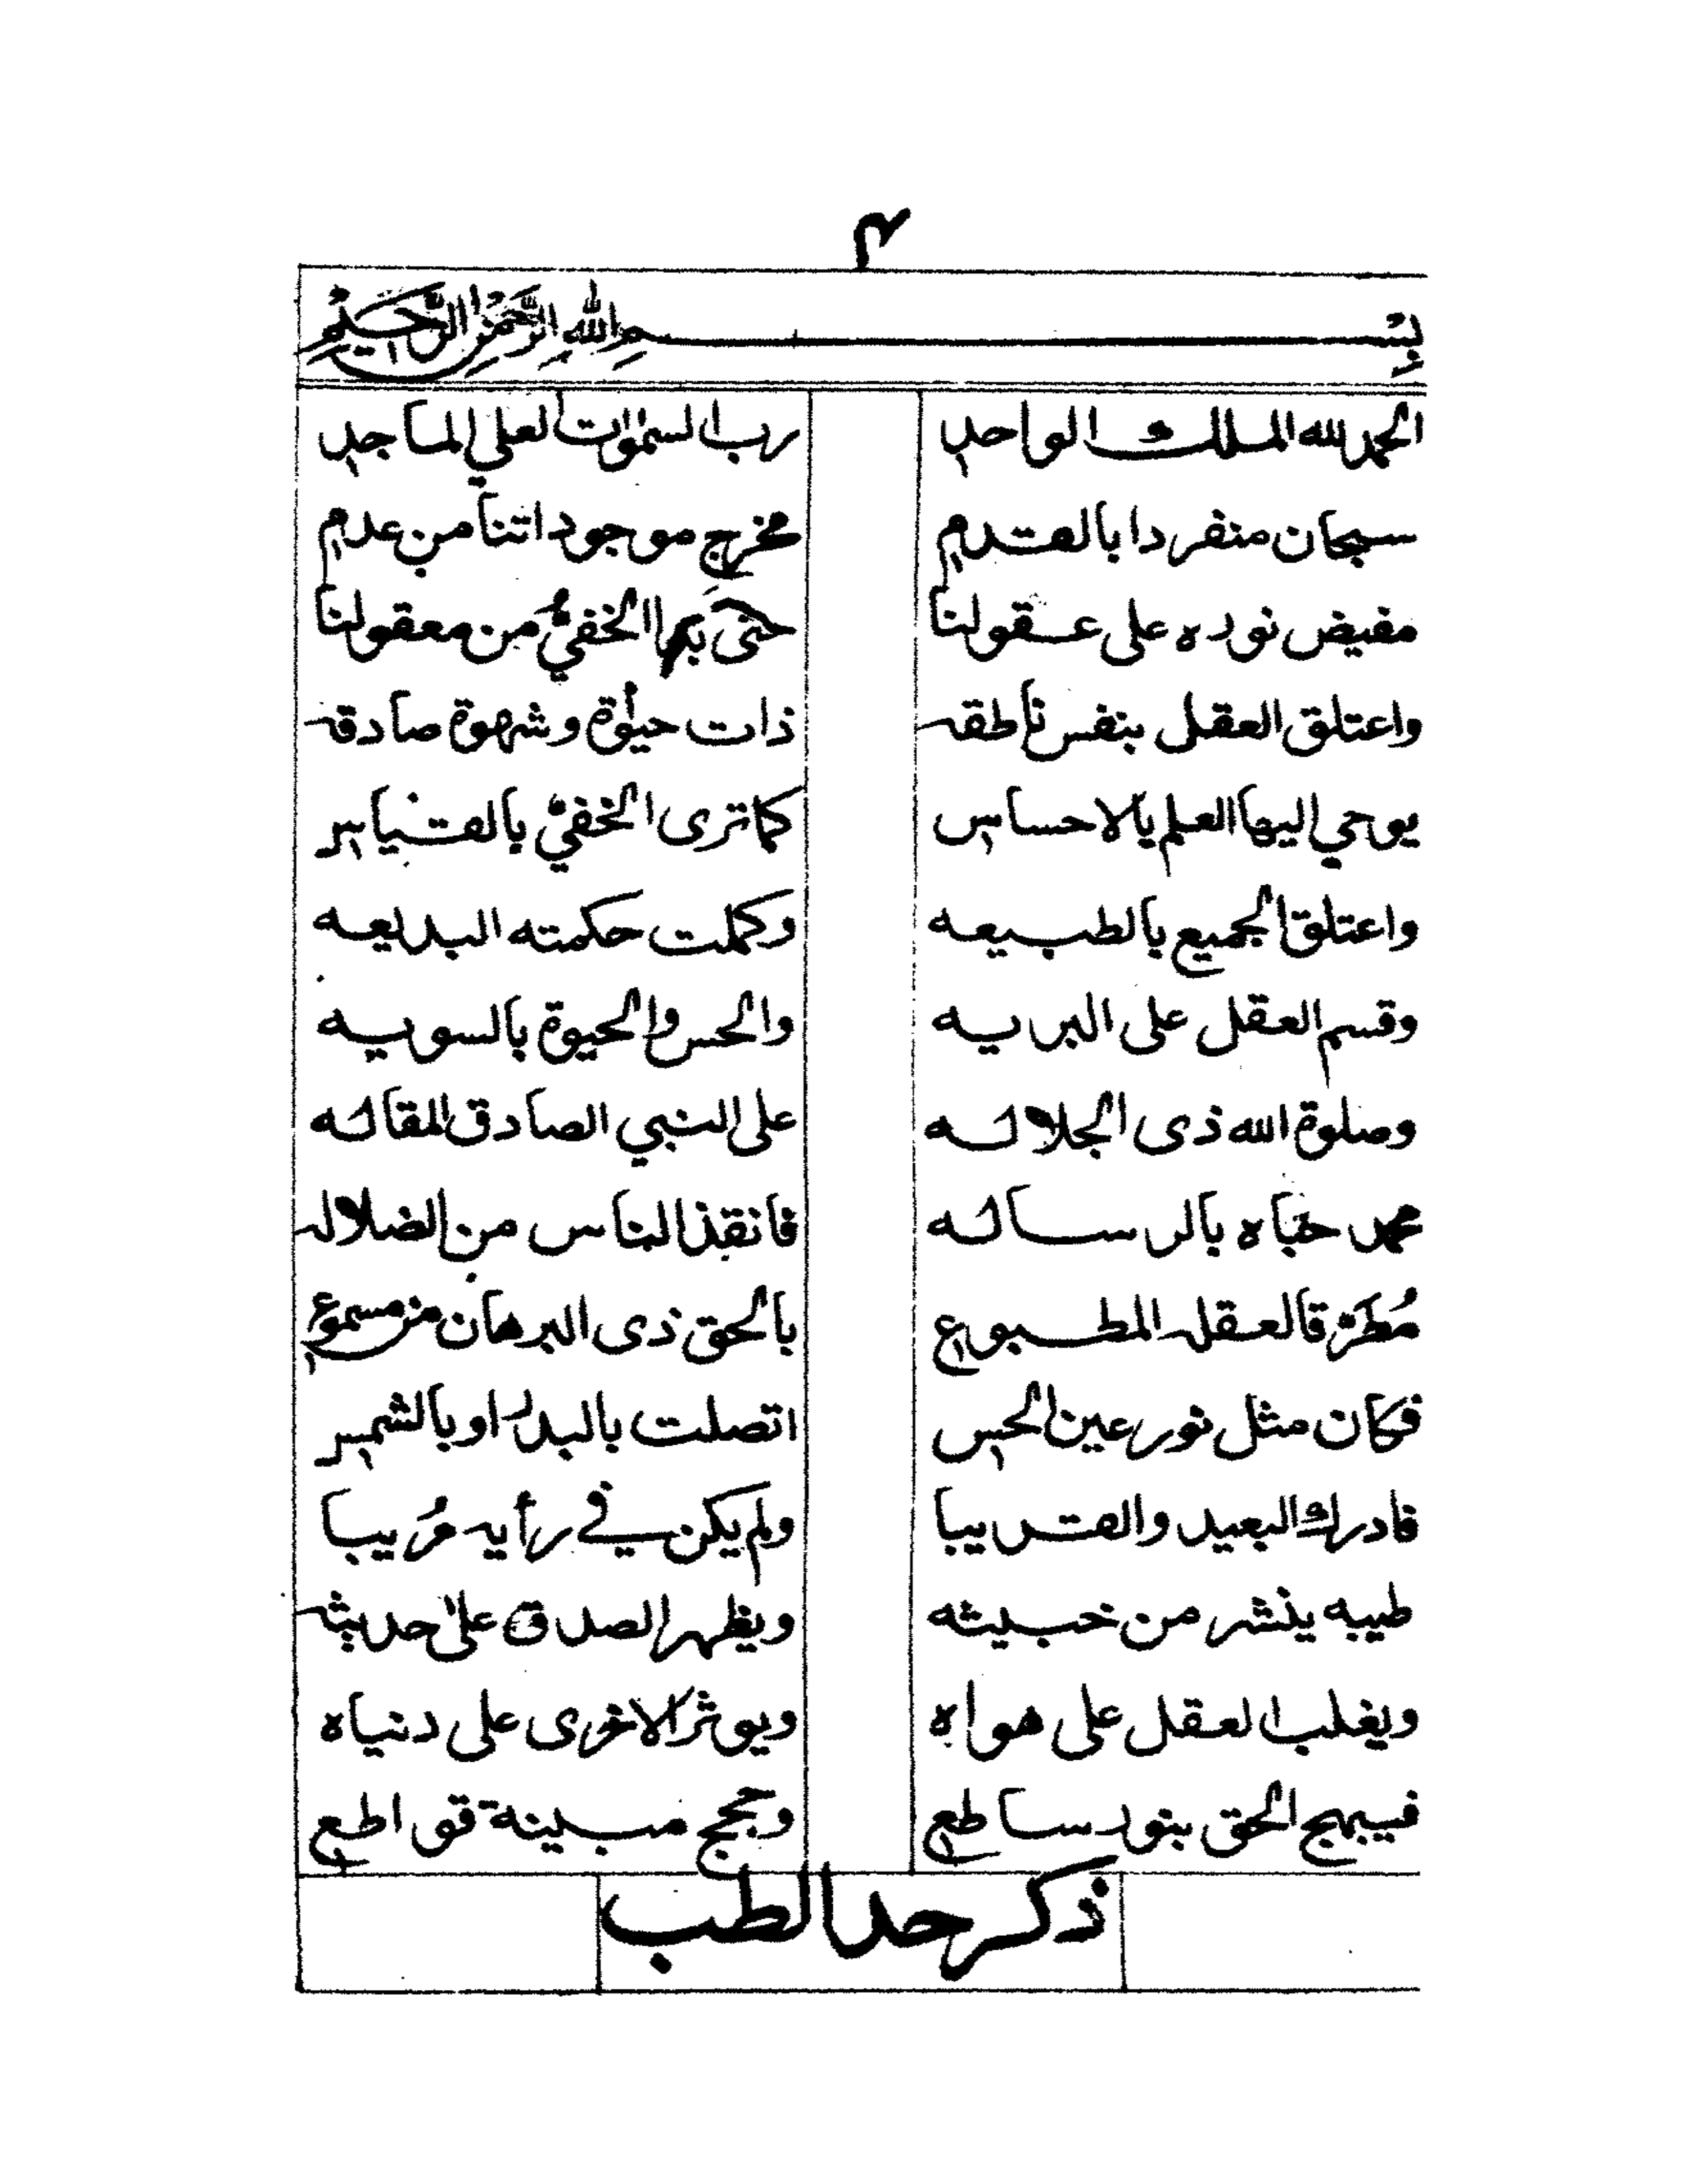 ٢
بِسْمِ اللهِ الرَّحْمٰنِ الرَّحِيْمِ
الحمد لله الملك الواحد رب السمٰوات لعلي الماجد
سبحان منفردا بالقدم مخرج موجوداتنا من عدم
مفيض نوره على عقولنا حتى بدا الخفيُّ من معقولنا
واعتلق العقل بنفس ناطقه ذات حيٰوة وشهوة صادقه
يوحي اليها العلم بالاحساس كما ترى الخفيّ بالقياس
واعتلق الجميع بالطبيعه وكملت حكمته البديعه
وقسم العقل على البريه والحس والحيوة بالسويه
وصلوة الله ذى الجلاله على النبي الصادق المقاله
محمد حباه بالرساله فانقذ الناس من الضلاله
بالحق ذى البرهان من مسموع
فكان مثل نور عين الحس اتصلت بالبدر او بالشمس
فادرك البعيد والقريبا ولم يكن في رأيه مُريبا
طيبه ينشر من خبيثه ويظهر الصدق على حديثه
ويغلب العقل على هواه ويوثر الاخرى على دنياه
فيبهج الحق بنور ساطع وحجج مبينة قواطع
ذكر حد الطب